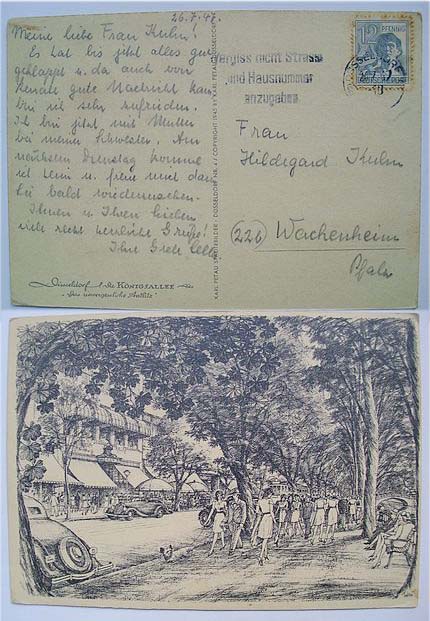 26.7.47.
Meine liebe Frau Kuhn!
Es hat bis jetzt alles gut
geklappt u. da auch von
Renate gute Nachricht kam
bin ich sehr zufrieden.
Ich bin jetzt mit Mutter
bei meiner Schwester. Am
nächsten Dienstag komme
ich heim u. freue mich dann
Sie bald wiederzusehen.
Ihnen u. Ihren Lieben
viele recht herzliche Grüße!
Ihre Grete
Düsseldorf Die KÖNIGSALLEE
"Das unvergessliche Antlitz"
KARL PETAU STADTBILDER · DÜSSELDORF NR. 4 / COPYRIGHT 1947 BY KARL PETAU DÜSSELDORF
12 PFENNIG
DEUTSCHE POST
DÜSSELDORF
Vergiss nicht Strasse
und Hausnummer
anzugeben
Frau
Hildegard Kuhn
(22b) Wachenheim
Pfalz